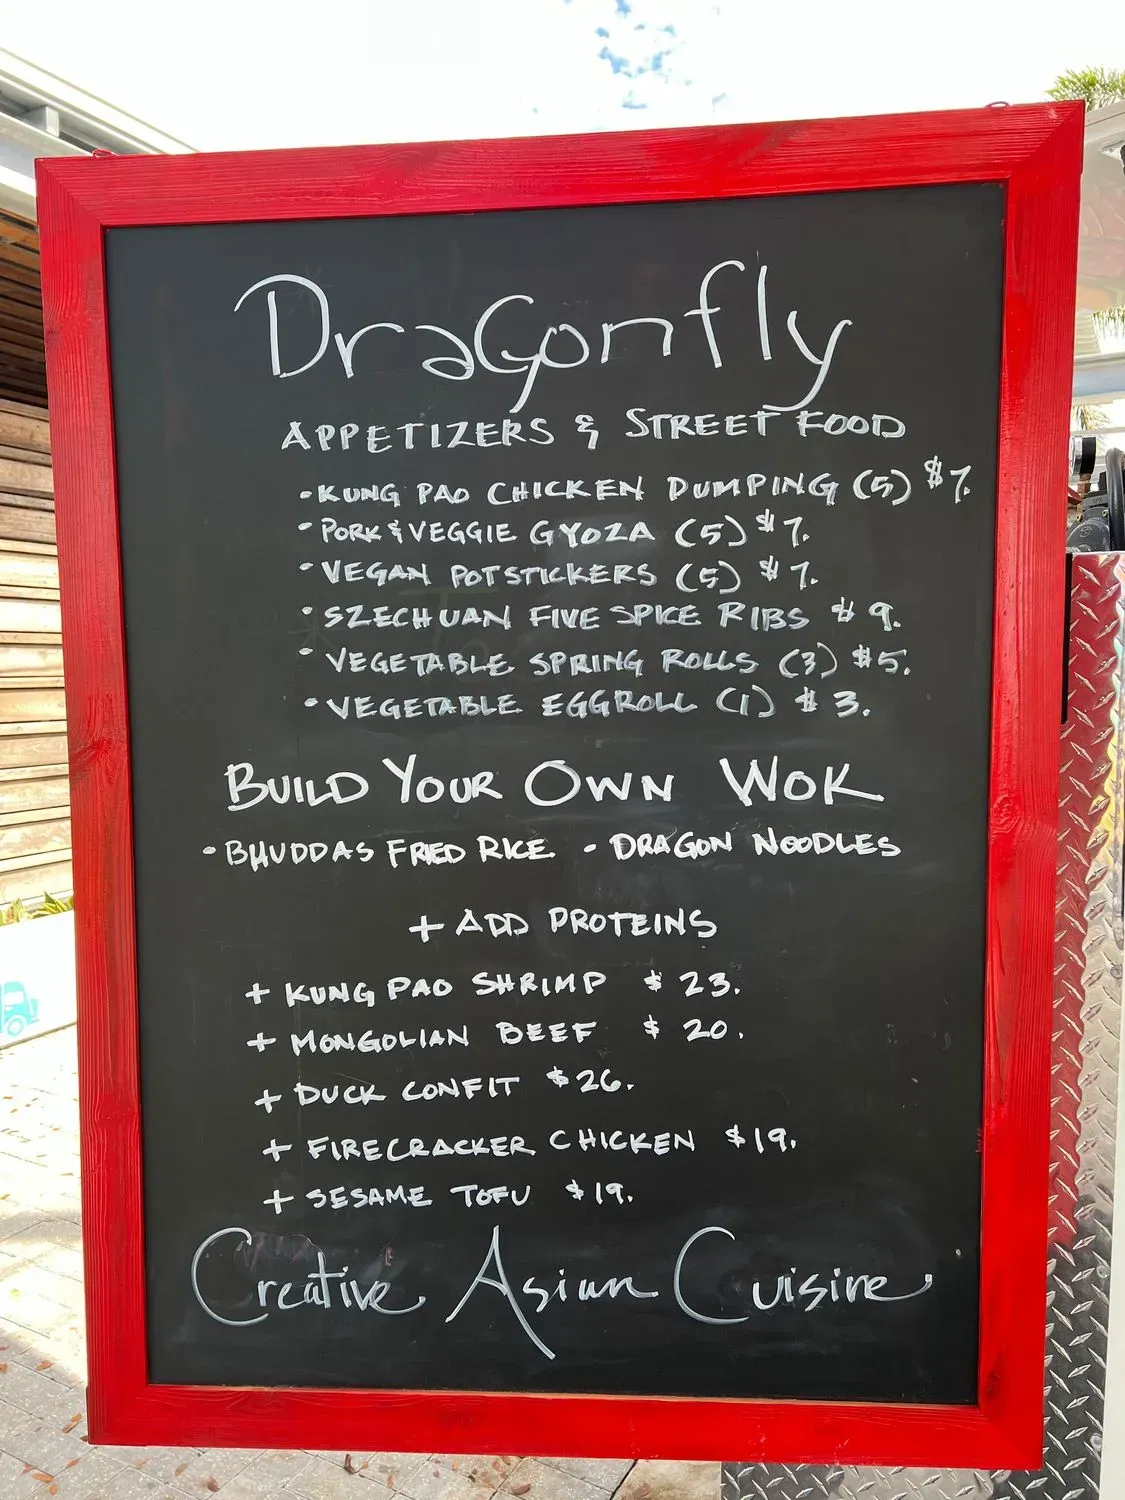 Dragonfly
APPETIZERS & STREET FOOD
• KUNG PAO CHICKEN DUMPING (5) $7.
• PORK & VEGGIE GYOZA (5) $7.
• VEGAN POTSTICKERS (5) $7.
• SZECHUAN FIVE SPICE RIBS $9.
• VEGETABLE SPRING ROLLS (3) $5.
• VEGETABLE EGGROLL (1) $3.
BUILD YOUR OWN WOK
• BHUDDAS FRIED RICE • DRAGON NOODLES
+ ADD PROTEINS
+ KUNG PAO SHRIMP $23.
+ MONGOLIAN BEEF $20.
+ DUCK CONFIT $26.
+ FIRECRACKER CHICKEN $19.
+ SESAME TOFU $19.
Creative Asian Cuisine